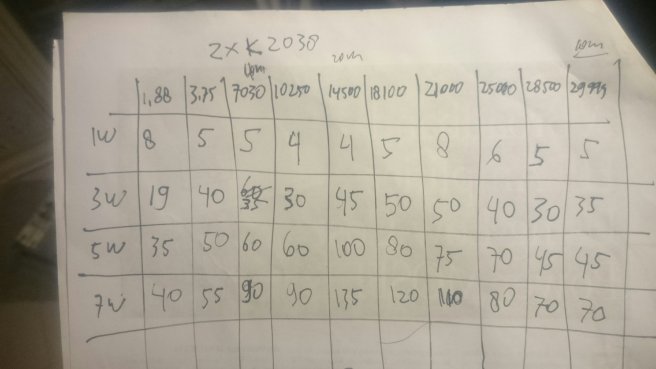 2xK2030
40m 20m 10m
1,88 3,75 7030 10250 14500 18100 21000 25000 28500 29999
1W 8 5 5 4 4 5 8 6 5 5
3W 19 40 35 30 45 50 50 40 30 35
5W 35 50 60 60 100 80 75 70 45 45
7W 40 55 90 90 135 120 110 80 70 70